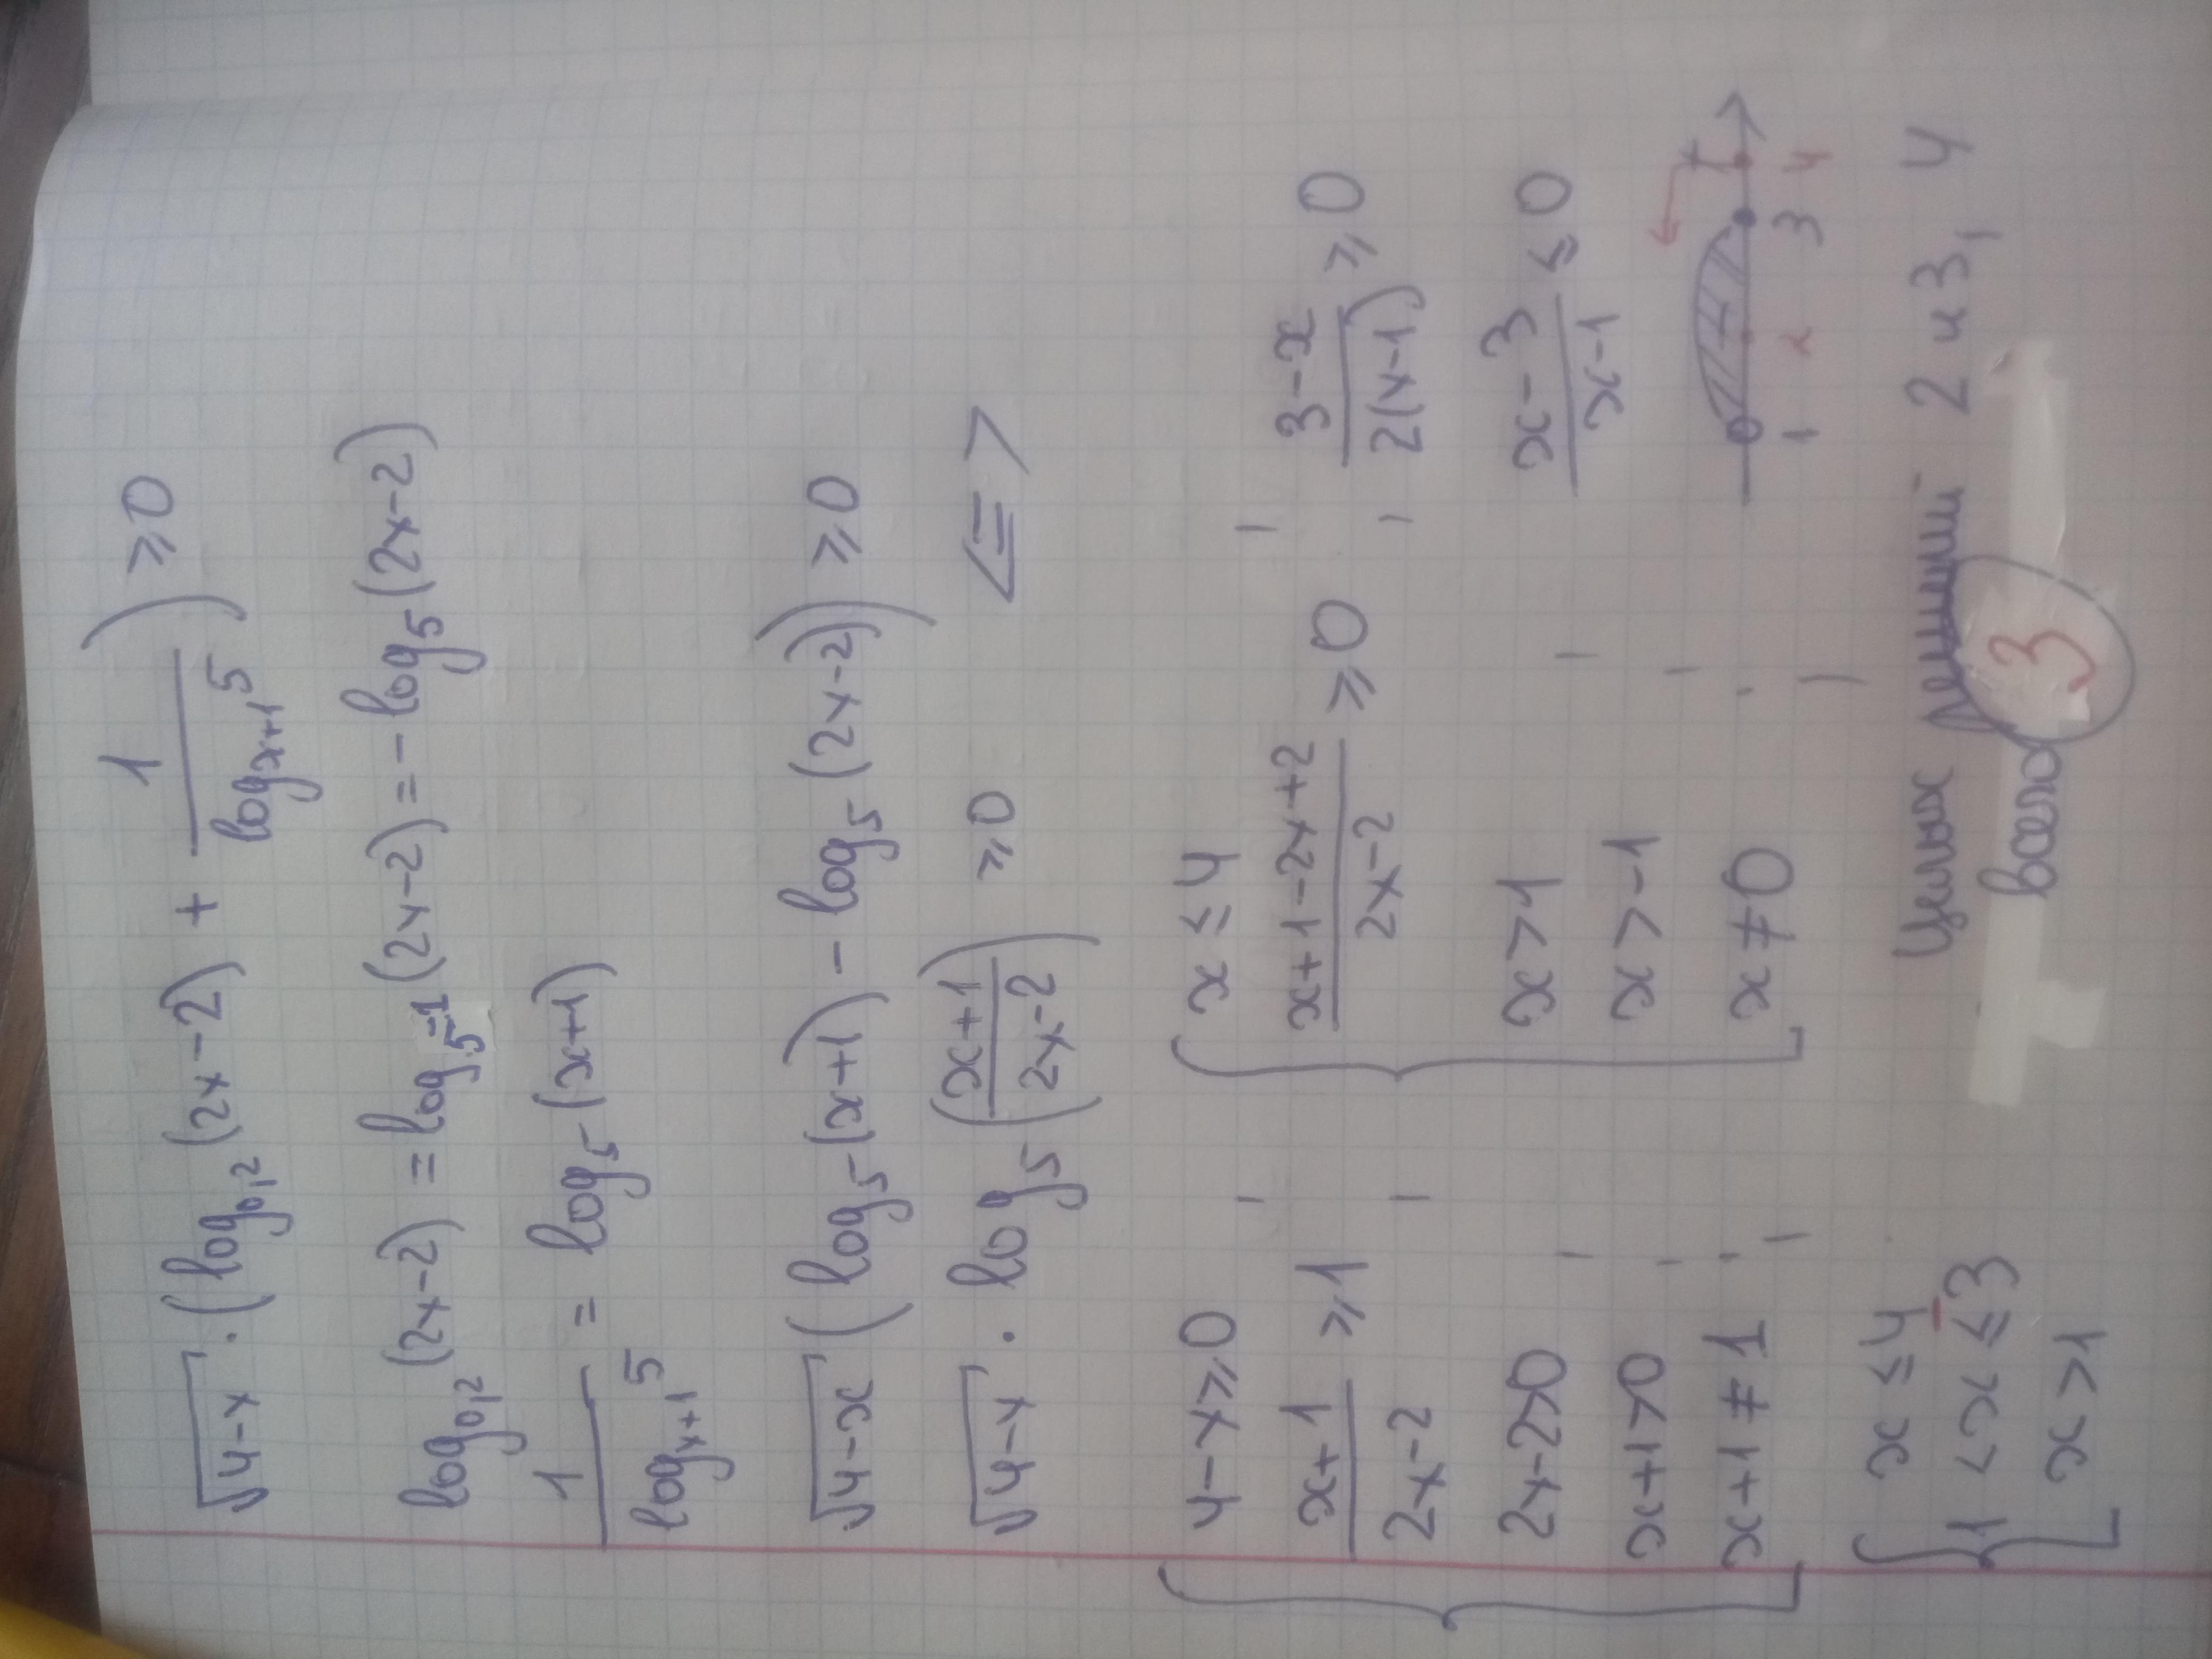 √(4-x) · (log₀,₂(2x-2) + 1/(logₓ₊₁5)) ≥ 0
log₀,₂(2x-2) = log₅₋₁(2x-2) = -log₅(2x-2)
1/(logₓ₊₁5) = log₅(x+1)
√(4-x) (log₅(x+1) - log₅(2x-2)) ≥ 0
√(4-x) · log₅((x+1)/(2x-2)) ≥ 0 <=>
{ 4-x≥0 , { x≤4 ,
(x+1)/(2x-2) ≥1 , (x+1-2x+2)/(2x-2) ≥0 , (3-x)/(2(x-1)) ≥0
2x-2>0 , x>1 , (x-3)/(x-1) ≤0
x+1>0 , x>-1 ,
x+1≠1 , x≠0 , 1 2 3 4
{ x≤4
1<x≤3
x>1
Целых решений 2 и 3, 4
всего 3